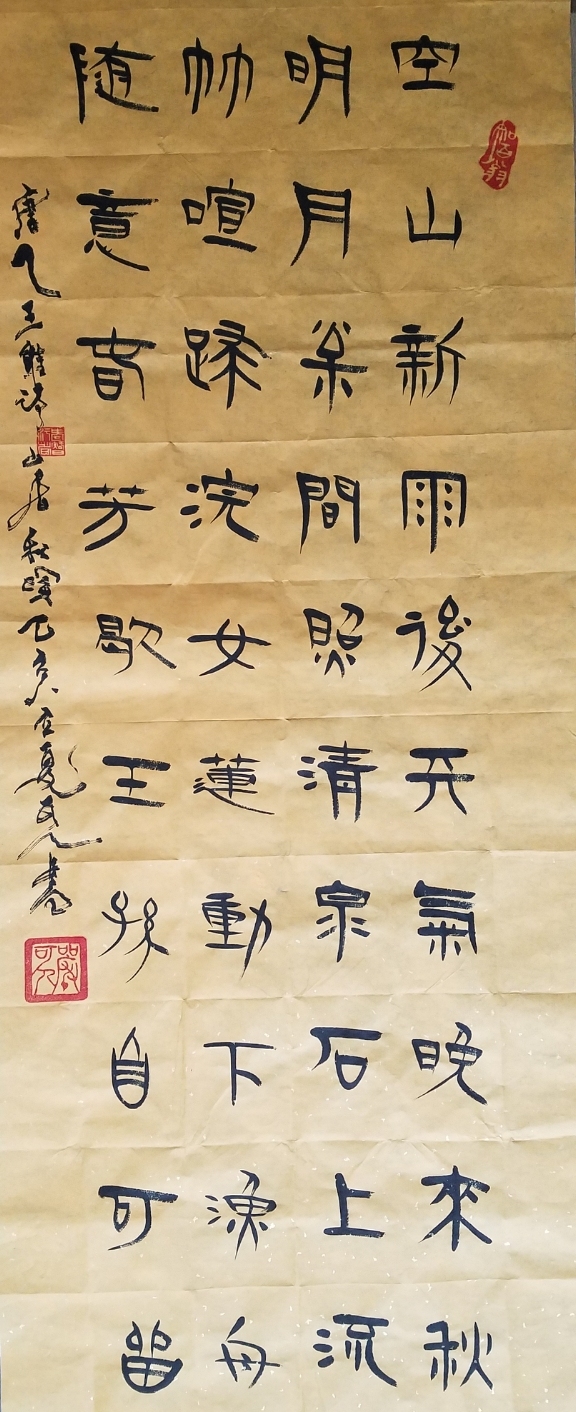 空山新雨後天氣晚來秋
明月枀間照清泉石上流
竹喧歸浣女蓮動下漁舟
随意春芳歇王孫自可留
唐人王維詩山居秋暝己亥立夏書